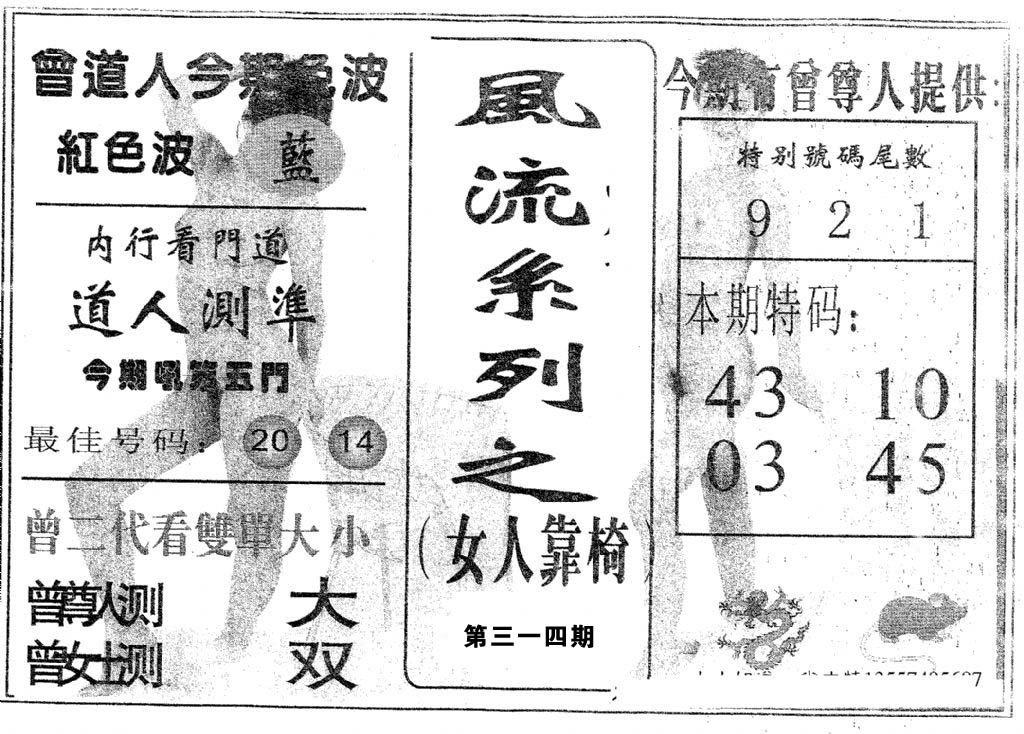 曾道人今期色波
紅色波 藍
内行看門道
道人測準
今期吼第五門
最佳号码: 20 14
曾二代看雙單大小
曾尊人测 大
曾女士测 双
風流系列之
(女人靠椅)
第三一四期
今期有曾尊人提供:
特别號碼尾數
9 2 1
本期特码:
43 10
03 45